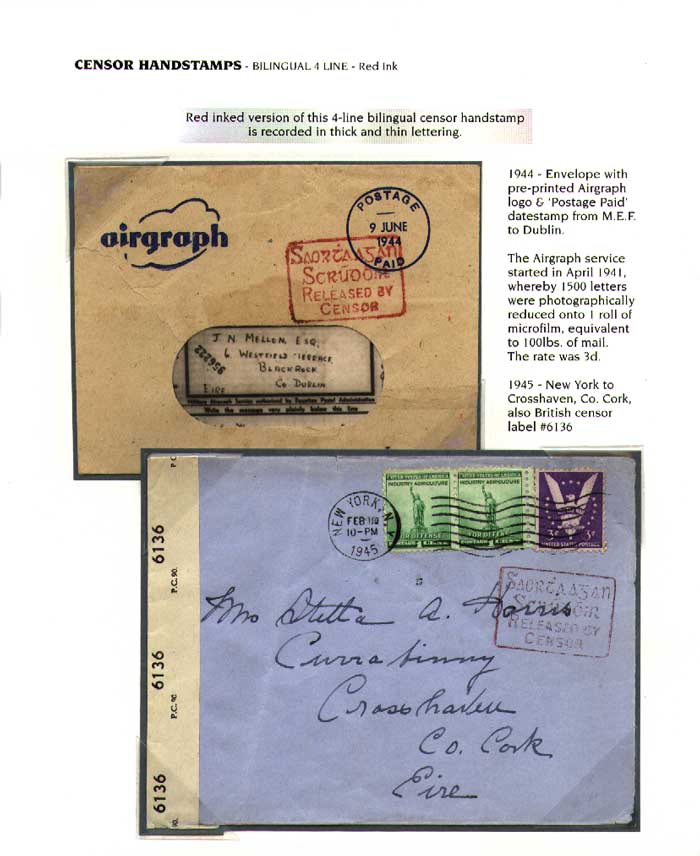 CENSOR HANDSTAMPS - BILINGUAL 4 LINE - Red Ink
Red inked version of this 4-line bilingual censor handstamp
is recorded in thick and thin lettering.
airgraph
POSTAGE
9 JUNE
1944
PAID
SAORTA AG AN
SCRÚDÓIR
RELEASED BY
CENSOR
J. N. MELLON, ESQ,
6, WESTFIELD TERRACE,
BLACKROCK
EIRE CO DUBLIN
956222
Military Airgraph Service authorised by Egyptian Postal Administration
Write the message very plainly below this line
1944 - Envelope with
pre-printed Airgraph
logo & 'Postage Paid'
datestamp from M.E.F.
to Dublin.
The Airgraph service
started in April 1941,
whereby 1500 letters
were photographically
reduced onto 1 roll of
microfilm, equivalent
to 100lbs. of mail.
The rate was 3d.
1945 - New York to
Crosshaven, Co. Cork,
also British censor
label #6136
P.C. 90.
6136
P.C. 90.
6136
P.C. 90.
6136
NEW YORK, N.
FEB
10-PM
1945
UNITED STATES OF AMERICA
INDUSTRY AGRICULTURE
FOR DEFENSE
UNITED STATES OF AMERICA
INDUSTRY AGRICULTURE
FOR DEFENSE
3¢ 3¢
UNITED STATES POSTAGE
SAORTA AG AN
SCRÚDÓIR
RELEASED BY
CENSOR
Mrs Stella A. Harris
Currabinny
Crosshaven
Co. Cork
Eire